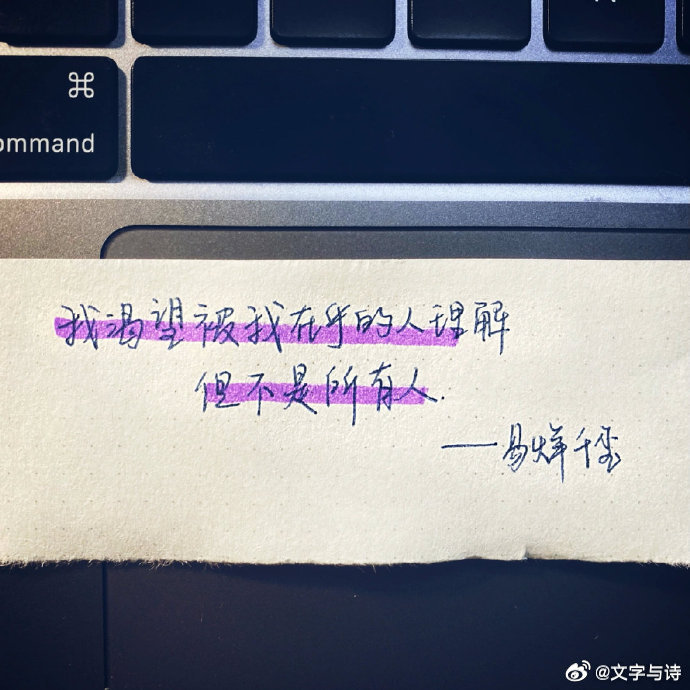 ⌘
ommand
我渴望被我在乎的人理解
但不是所有人.
——易烊千玺
@文字与诗